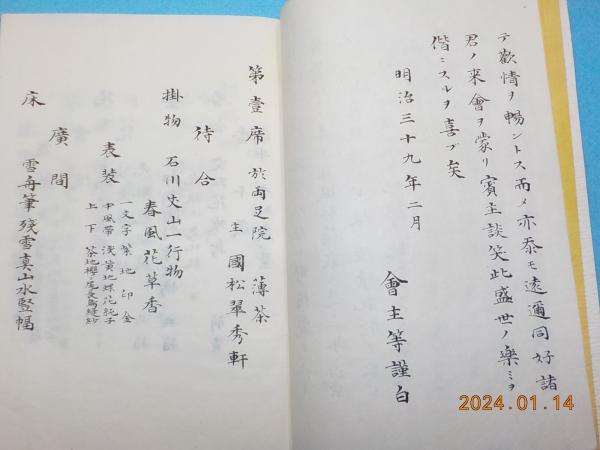 テ歡情ヲ暢ントス而〆亦忝モ遠邇同好諸
君ノ来會ヲ蒙リ賓主談笑此盛世ノ樂ミヲ
偕ニスルヲ喜ブ矣
明治三十九年二月
會主等謹白
第壹席 於両足院 薄茶
主 國松翠秀軒
待合
掛物 石川丈山一行物
春風花草香
表装 一文字 紫地印金
中風帯 浅黄地蝶花純子
上下 茶地
床 廣間
雪舟筆残雪真山水竪幅
2024.01.14